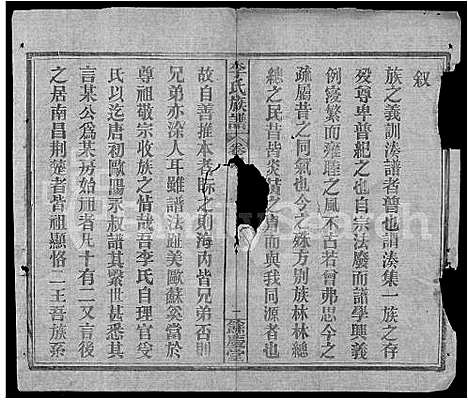 叙
族之義訓湊譜者普也謂湊集一族之存
殁尊卑普紀之也自宗法廢而譜學興義
例寖繁而雍睦之風不古若曾弗思今之
疏屬昔之同氣也今之殊方別族林林總
總之民昔皆炎黃之冑而與我同源者也
李氏族譜 卷
一 餘慶堂
故自善推本者际之則海内皆兄弟否則
兄弟亦涂人耳雖譜法誰美歐蘇奚當於
尊祖敬宗收族之情哉吾李氏自理官受
氏以迄唐初歐陽永叔譜其繫世甚悉其
言某公爲某房始祖者凡十有二又言後
之居南昌荆楚者皆祖顯恪二王吾族系
FamilySearch